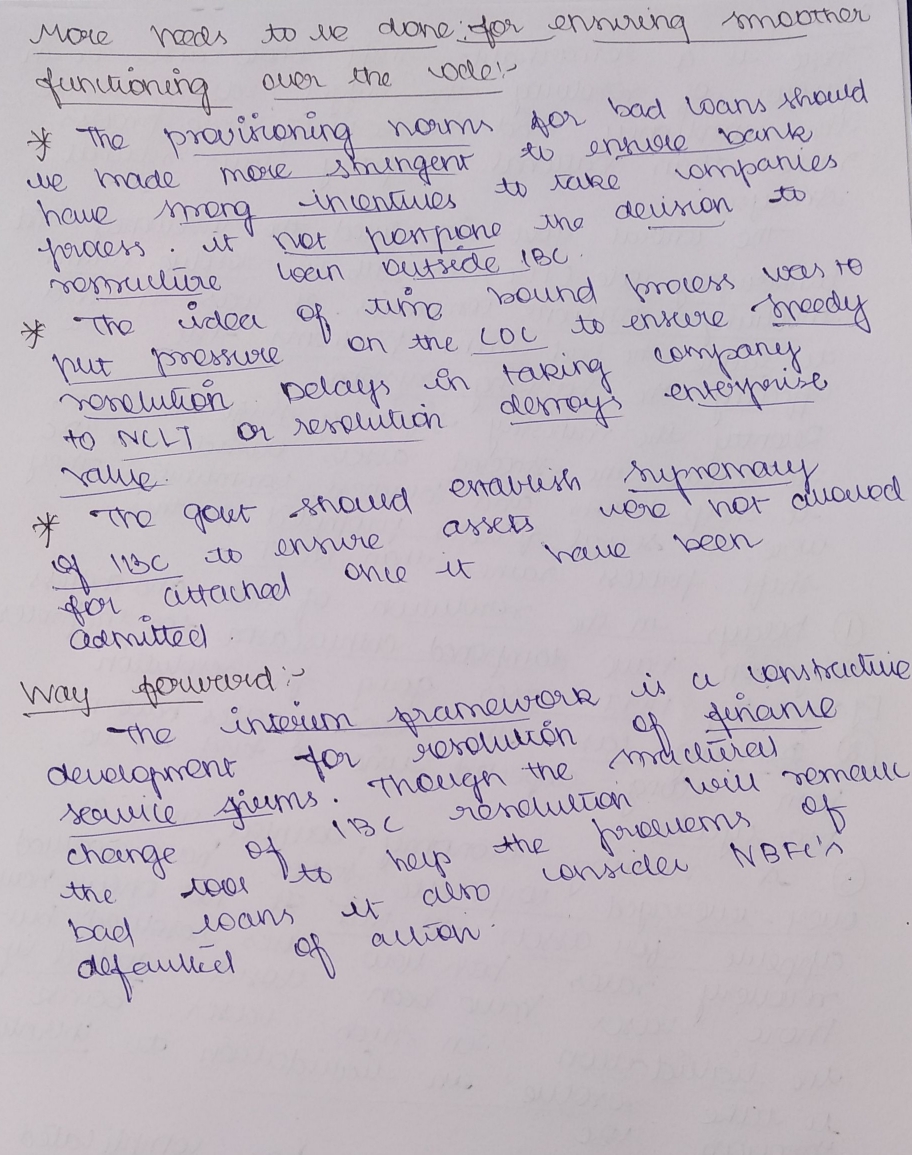 More needs to be done for ensuring smoother
functioning over the code:-
* The provisioning norms for bad loans should
be made more stringent to ensure bank
have strong incentives to take companies
process. it not postpone the decision to
restructure loan outside IBC.
* The idea of time bound process was to
put pressure on the COC to ensure speedy
resolution. Delays in taking company
to NCLT or resolution destroys enterprise
value.
* The govt should establish supremacy
of IBC to ensure assets were not allowed
for attached once it have been
admitted.
Way forward:-
The interim framework is a constructive
development for resolution of finance
service firms. Though the structural
change of IBC resolution will remain
the tool to help the problems of
bad loans it also consider NBFC's
defaulted of action.